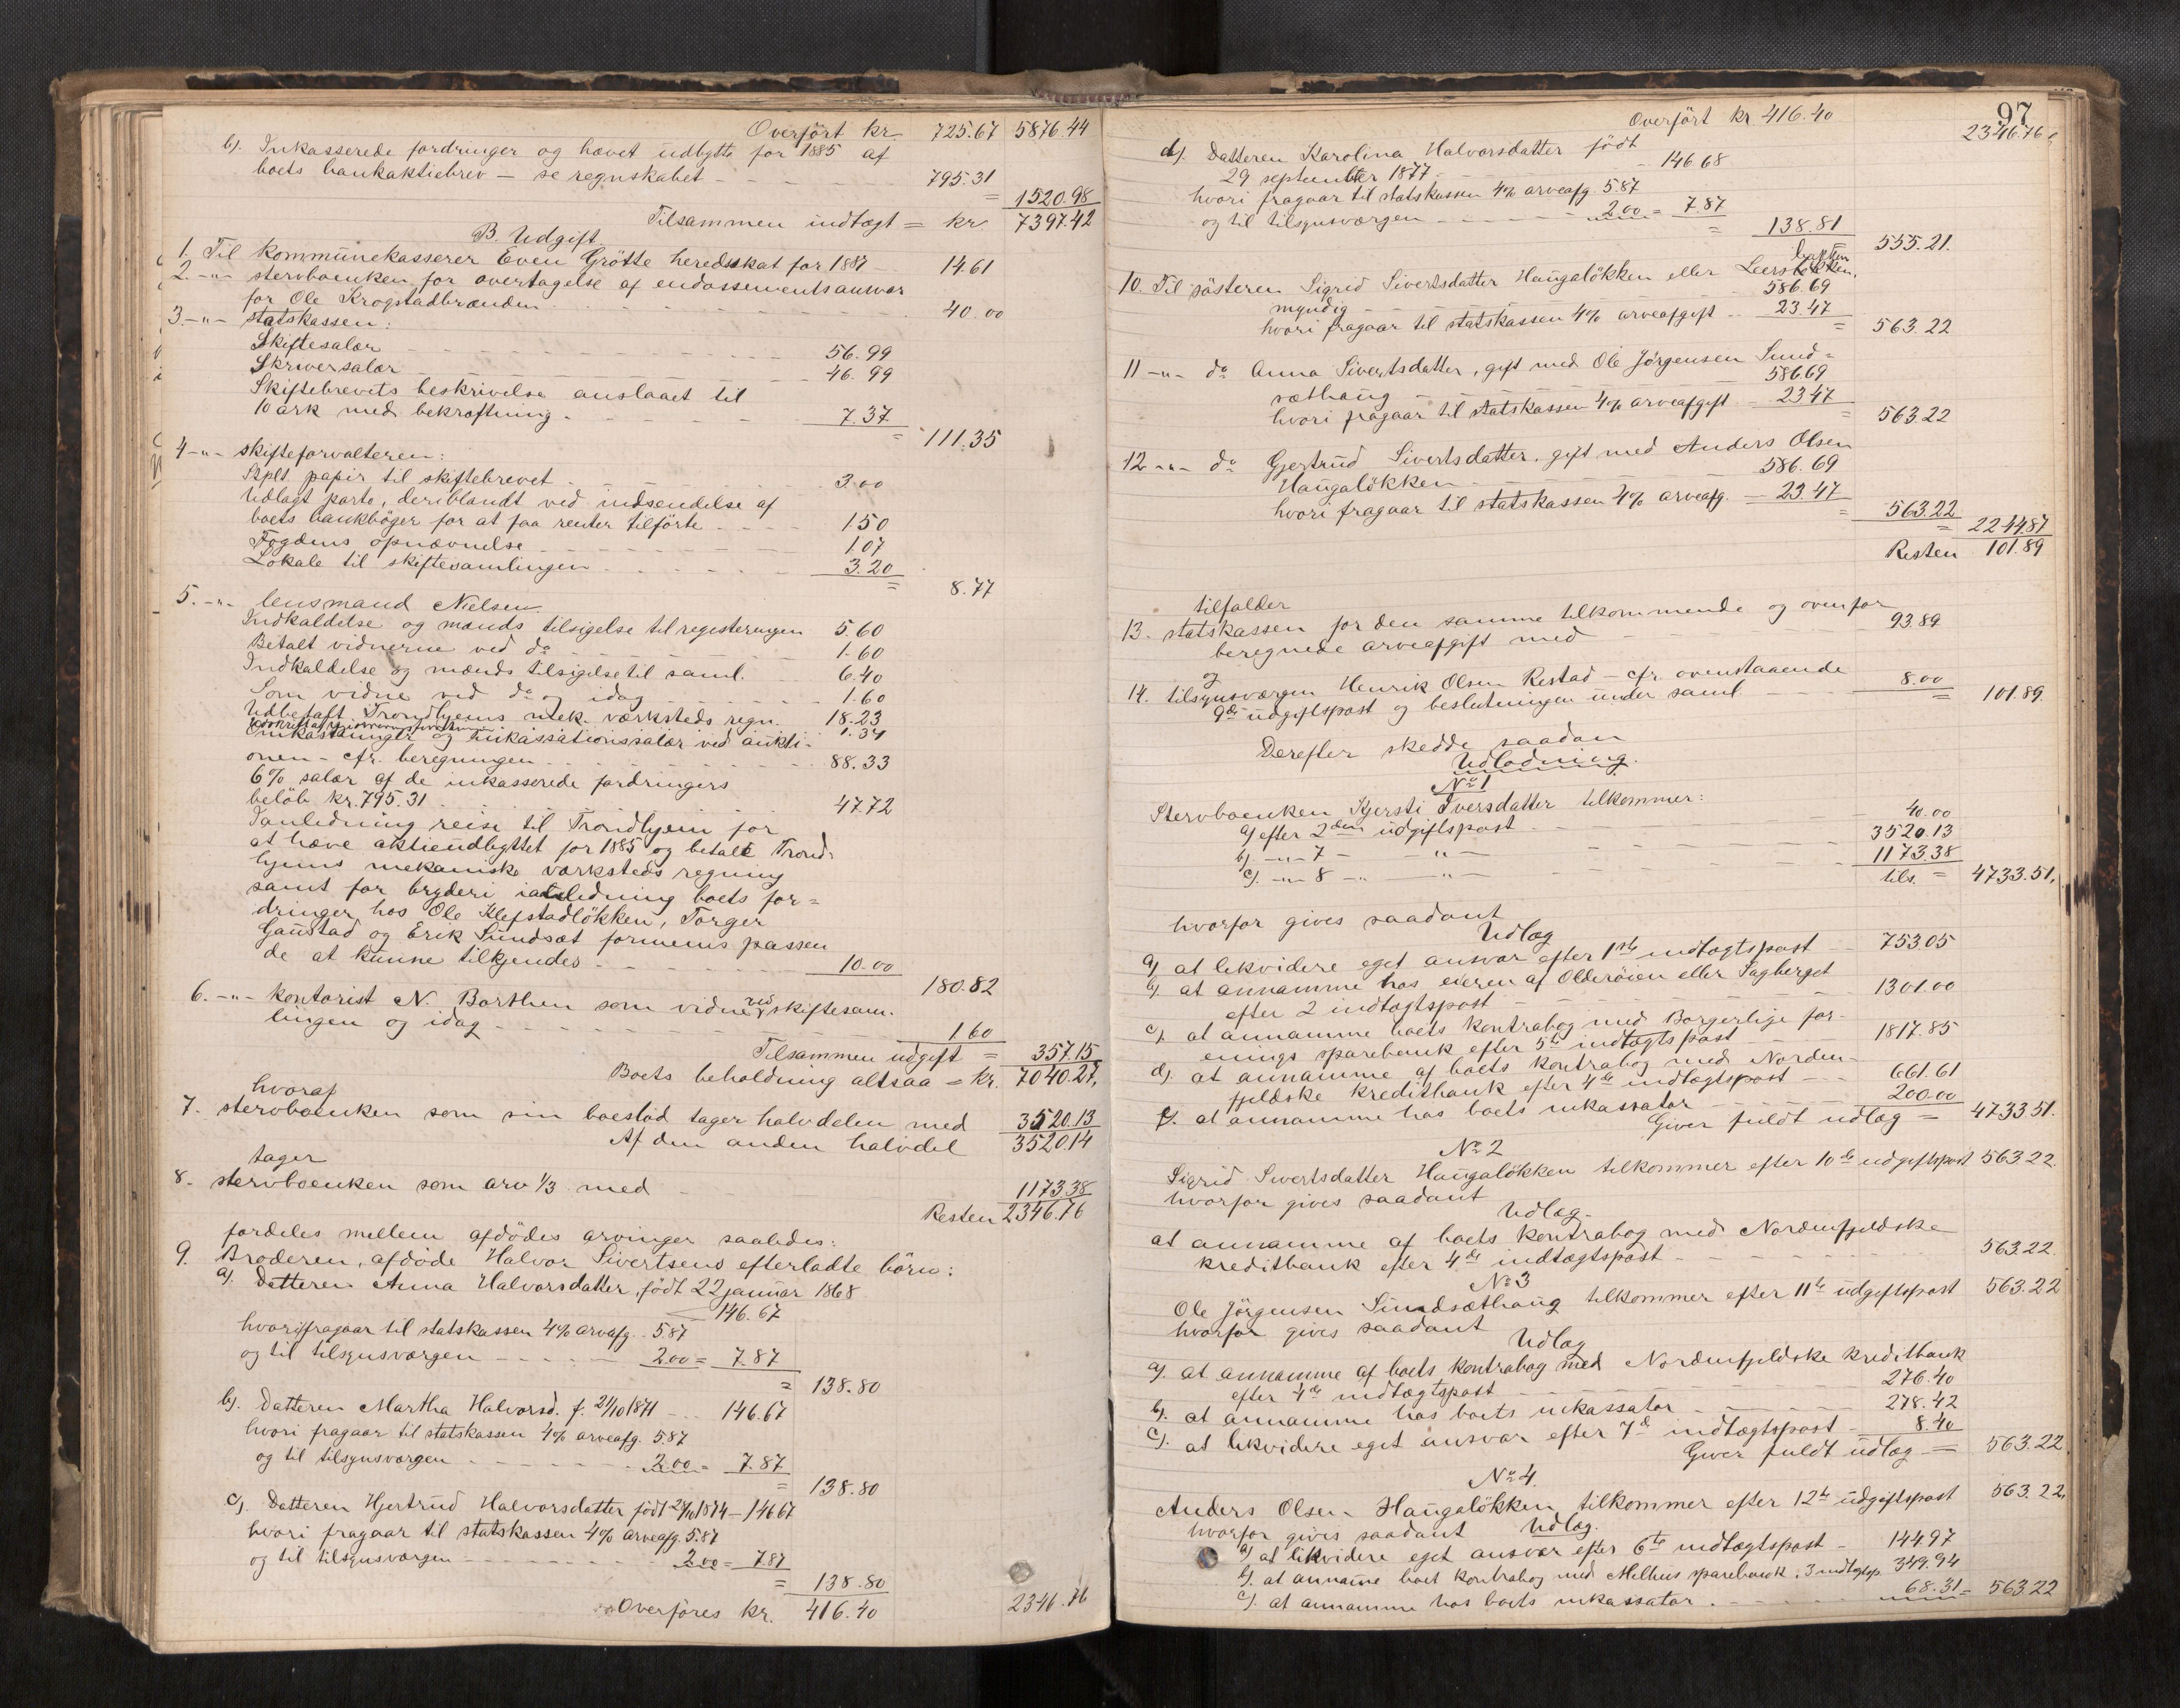 Overført kr 725.67 5876.44
b). Inkasserede fordringer og hævet udbytte for 1885 af
boets bankaktiebrev – se regnskabet 795.31
= 1520.98
Tilsammen indtægt = kr. 7397.42
B. Udgift
1. Til kommunekasserer Even Grötte heredsskat for 1887 14.61
2. -"- stervboenken for overtagelse af endossementsansvar
for Ole Krogstadbrænden 40.00
3. -"- statskassen:
Skiftesalær 56.99
Skriversalær 46.99
Skiftebrevets beskrivelse anslaaet til
10 ark med bekræftning 7.37
= 111.35
4 -"- skifteforvalteren:
Stplt papir til skiftebrevet 3.00
Udlagt porto, deriblandt ved indsendelse af
boets bankbøger for at faa renter tilførte 1.50
Fogdens opnævnelse 1.07
Lokale til skiftesamlingen 3.20
= 8.77
5. -"- lensmand Nielsen
Indkaldelse og mænds tilsigelse til registeringen 5.60
Betalt vidnerne ved do 1.60
Indkaldelse og mænds tilsigelse til saml. 6.40
Som vidne ved do og idag 1.60
Udbetalt Trondhjems mek. værksteds regn. 18.23
1.34
Omkostninger og inkassationssalær ved aukti-
onen – cfr. beregningen 88.33
6% salær af de inkasserede fordringers
beløb kr. 795.31 47.72
I anledning reise til Trondhjem for
at hæve aktieudbyttet for 1885 og betale Trond-
hjems mekaniske værksteds regning
samt for bryderi i anledning boets for=
dringer hos Ole Klefstadløkken, Torger
Gaustad og Erik Sundsæt formenes passen
de at kunne tilkjendes 10.00
180.82
6. -"- kontorist N. Borthen som vidne ved skiftesam-
lingen og idag 1.60
Tilsammen udgift = 357.15
Boets beholdning altsaa = kr. 7040.27,
hvoraf
7. stervboenken som sin boeslod tager halvdelen med 3520.13
Af den anden halvdel 3520.14
tager
8. stervboenken som arv 1/3 med 1173.38
Resten 2346.76
fordeles mellem afdødes arvinger saaledes:
9. Broderen, afdøde Halvor Sivertsens efterladte börn:
a). Datteren Anna Halvorsdatter, født 22 januar 1868
146.67
hvori fragaar til statskassen 4% arveafg. 5.87
og til tilsynsværgen 2.00 = 7.87
= 138.80
b). Datteren Martha Halvorsd. f. 21/10 1871 146.67
hvori fragaar til statskassen 4% arveafg. 5.87
og til tilsynsværgen 2.00 = 7.87
= 138.80
c). Datteren Hjertrud Halvorsdatter født 1874 – 146.67
hvori fragaar til statskassen 4% arveafg. 5.87
og til tilsynsværgen 2.00 = 7.87
= 138.80
Overføres kr. 416.40 2346.76
97
Overført kr 416.40 2346.76
d). Datteren Karolina Halvorsdatter født
29 september 1877 146.68
hvori fragaar til statskassen 4% arveafg. 5.87
og til tilsynsværgen 2.00 = 7.87
= 138.81
555.21.
10. Til søsteren Sigrid Sivertsdatter Haugaløkken eller Leersbakken,
myndig 586.69
hvori fragaar til statskassen 4% arveafgift 23.47
= 563.22
11 -"- do Anna Sivertsdatter, gift med Ole Jørgensen Sund=
sæthaug 586.69
hvori fragaar til statskassen 4% arveafgift 23.47
= 563.22
12 -"- do Gjertrud Sivertsdatter, gift med Anders Olsen
Haugaløkken 586.69
hvori fragaar til statskassen 4% arveafg. 23.47
= 563.22
= 2244.87
Resten 101.89
tilfalder
13. statskassen for den samme tilkommende og ovenfor
beregnede arveafgift med 93.89
og
14. tilsynsværgen Henrik Olsen Restad – cfr. ovenstaaende
9de udgiftspost og beslutningen under saml. 8.00
= 101.89.
Derefter skedde saadan
Udlodning.
No 1
Stervboenken Kjersti Iversdatter tilkommer:
a) efter 2den udgiftspost 40.00
b). -"- 7 – -"- 3520.13
c). -"- 8 -"- -"- 1173.38
tils. = 4733.51,
hvorfor gives saadant
Udlæg
a) at likvidere eget ansvar efter 1ste indtægtspost 753.05
b). at annamme hos eieren af Olderöien eller Sagberget
efter 2 indtægtspost 1301.00
c). at annamme boets kontrabog med Borgerlige for-
enings sparebank efter 5te indtægtspost 1817.85
d). at annamme af boets kontrabog med Norden-
fjeldske kreditbank efter 4de indtægtspost 661.61
e. at annamme hos boets inkassator 200.00
Giver fuldt udlæg = 4733.51.
No 2
Sigrid Sivertsdatter Haugaløkken tilkommer efter 10de udgiftspost 563.22.
hvorfor gives saadant
Udlæg.
at annamme af boets kontrabog med Nordenfjeldske
kreditbank efter 4de indtægtspost 563.22.
No 3
Ole Jörgensen Sundsæthaug tilkommer efter 11te udgiftspost 563.22
hvorfor gives saadant
Udlæg
a). at annamme af boets kontrabog med Nordenfjeldske kreditbank
efter 4de indtægtspost 276.40
b). at annamme hos boets inkassator 278.42
c). at likvidere eget ansvar efter 7de indtægtspost 8.40
Giver fuldt udlæg = 563.22
No 4.
Anders Olsen Haugaløkken tilkommer efter 12te udgiftspost 563.22,
hvorfor gives saadant Udlæg.
a) at likvidere eget ansvar efter 6te indtægtspost 144.97
b). at annamme boet kontrabog med Melhus sparebank: 3 indtægtsp. 349.94
c). at annamme hos boets inkassator 68.31 = 563.22